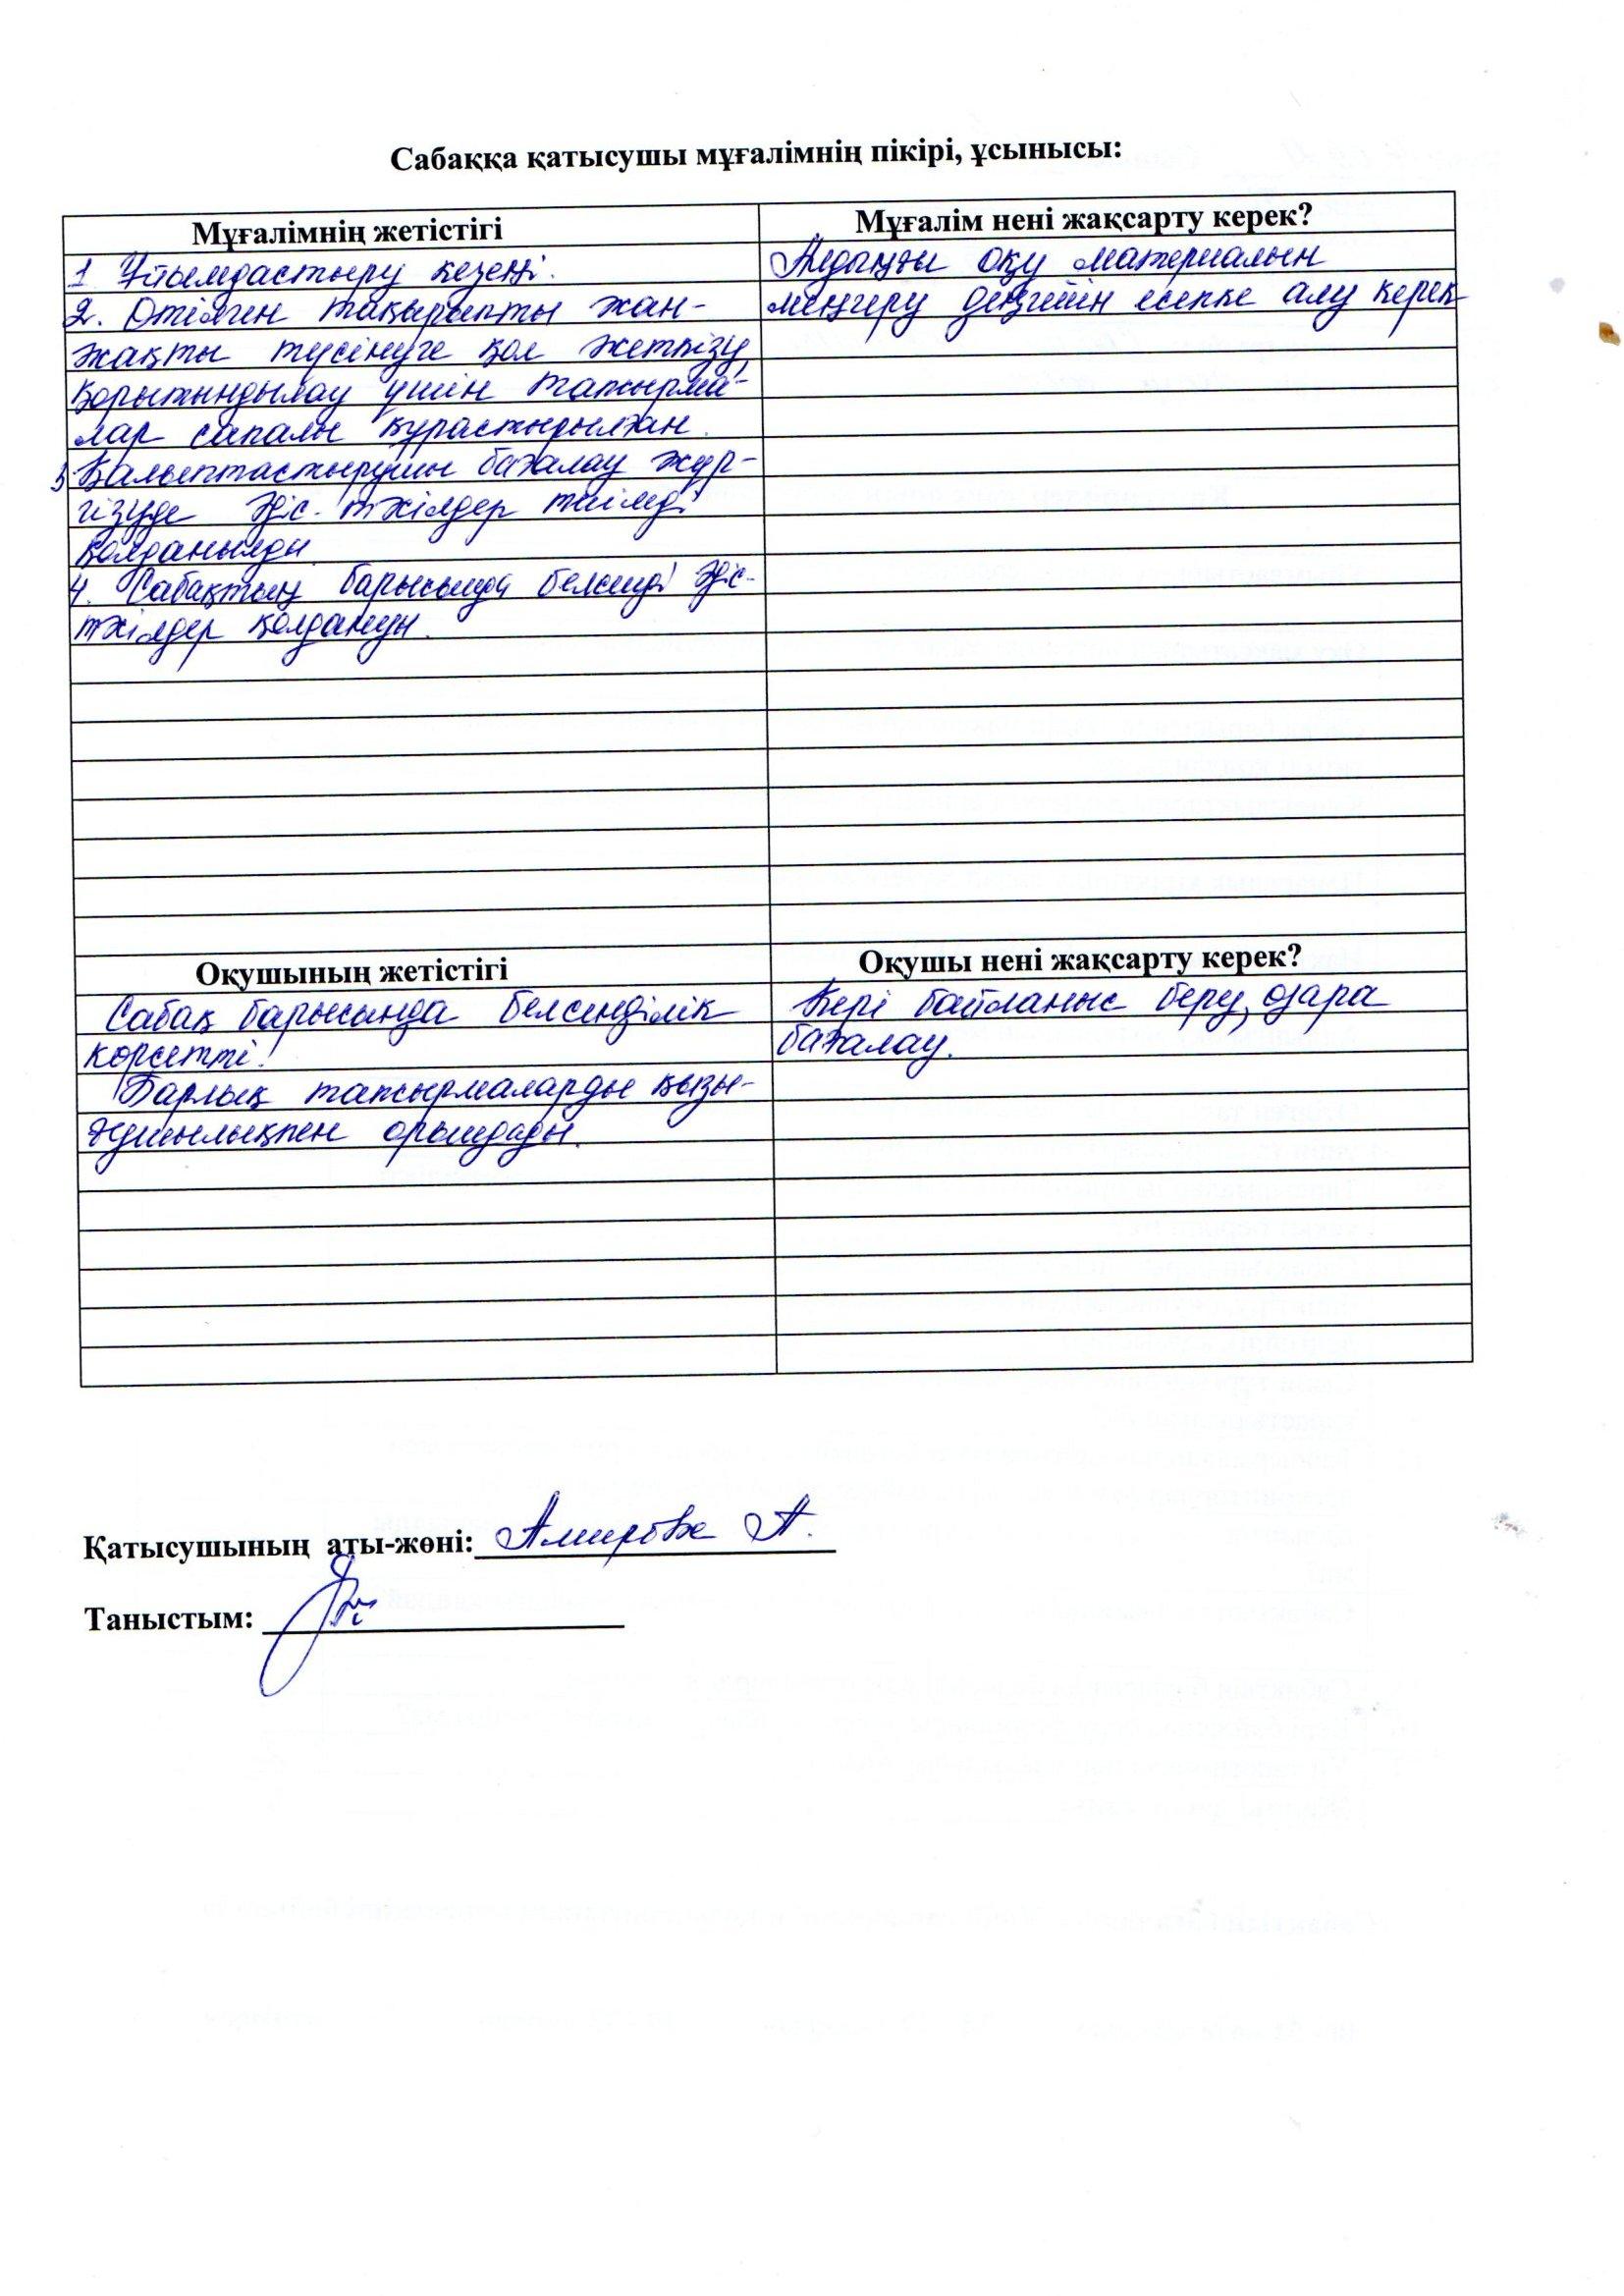 Сабаққа қатысушы мұғалімнің пікірі, ұсынысы:
Мұғалімнің жетістігі
Мұғалім нені жақсарту керек?
1 Ұйымдастыру кезеңі.
2. Өтілген тақырыпты жан-
жақты түсінуге қол жеткізу,
қорытындылау үшін тапсырма-
лар сапалы құрастырылған.
3 Қалыптастырушы бағалау жүр-
гізуде әдіс-тәсілдер тиімді
қолданылды.
4. Сабақтың барысында белсенді әдіс-
тәсілдер қолдануы.
Алдыңғы оқу материалын
меңгеру деңгейін есепке алу керек
Оқушының жетістігі
Оқушы нені жақсарту керек?
Сабақ барысында белсенділік
көрсетті.
Барлық тапсырмаларды қызы-
ғушылықпен орындады.
Кері байланыс беру, өзара
бағалау.
Қатысушының аты-жөні: Амирова А.
Таныстым: